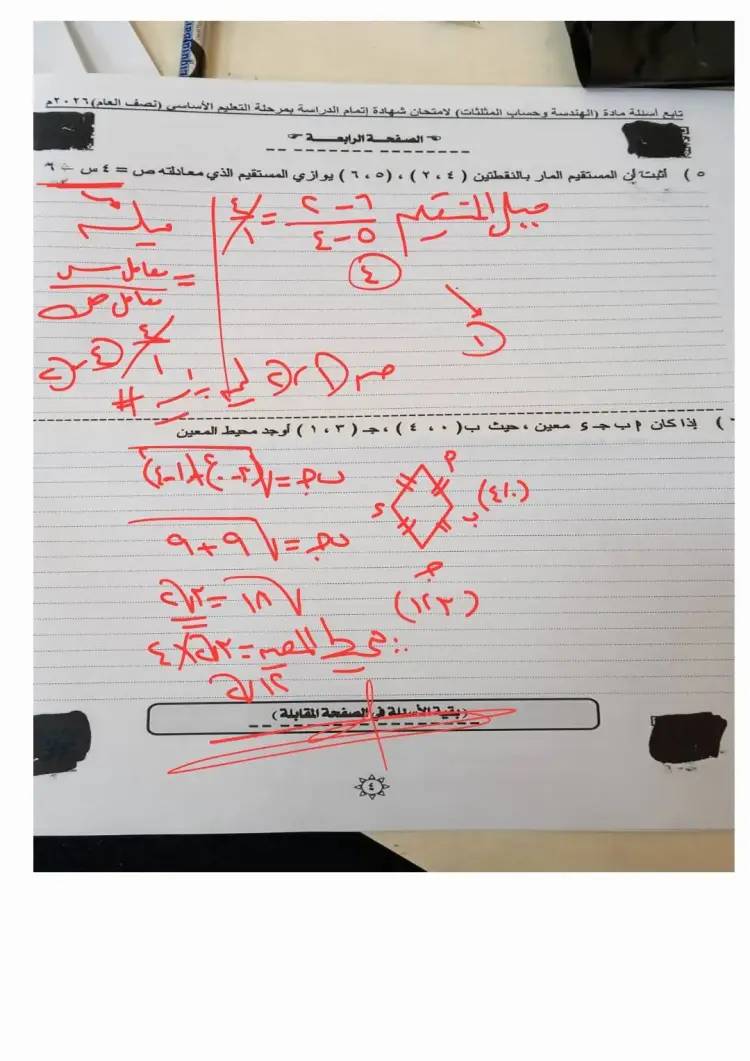 تابع أسئلة مادة (الهندسة وحساب المثلثات) لامتحان شهادة إتمام الدراسة بمرحلة التعليم الأساسي (نصف العام) ٢٠٢٦م
الصفحة الرابعة
٥ ) أثبت أن المستقيم المار بالنقطتين ( ٤ ، ٢ ) ، ( ٥ ، ٦ ) يوازي المستقيم الذي معادلته ص = ٤ س ـ ٦
ميل المستقيم ٦ - ٢ / ٥ - ٤ = ٤/١
٤
١
ميله
= معامل س / معامل ص
٤/١
#
) إذا كان م ب جـ ء معين ، حيث ب ( ٠ ، ٤ ) ، جـ ( ٣ ، ١ ) أوجد محيط المعين
م
ء
ب (٤،٠)
جـ
(١،٣)
ب جـ = √(٣-٠)²+(١-٤)²
ب جـ = √٩ + ٩
√١٨ = ٣√٢
∴ محيط المعين = ٣√٢ × ٤
١٢√٢
(بقية الأسئلة في الصفحة المقابلة)
٤